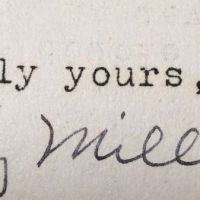 ly yours,
Mill